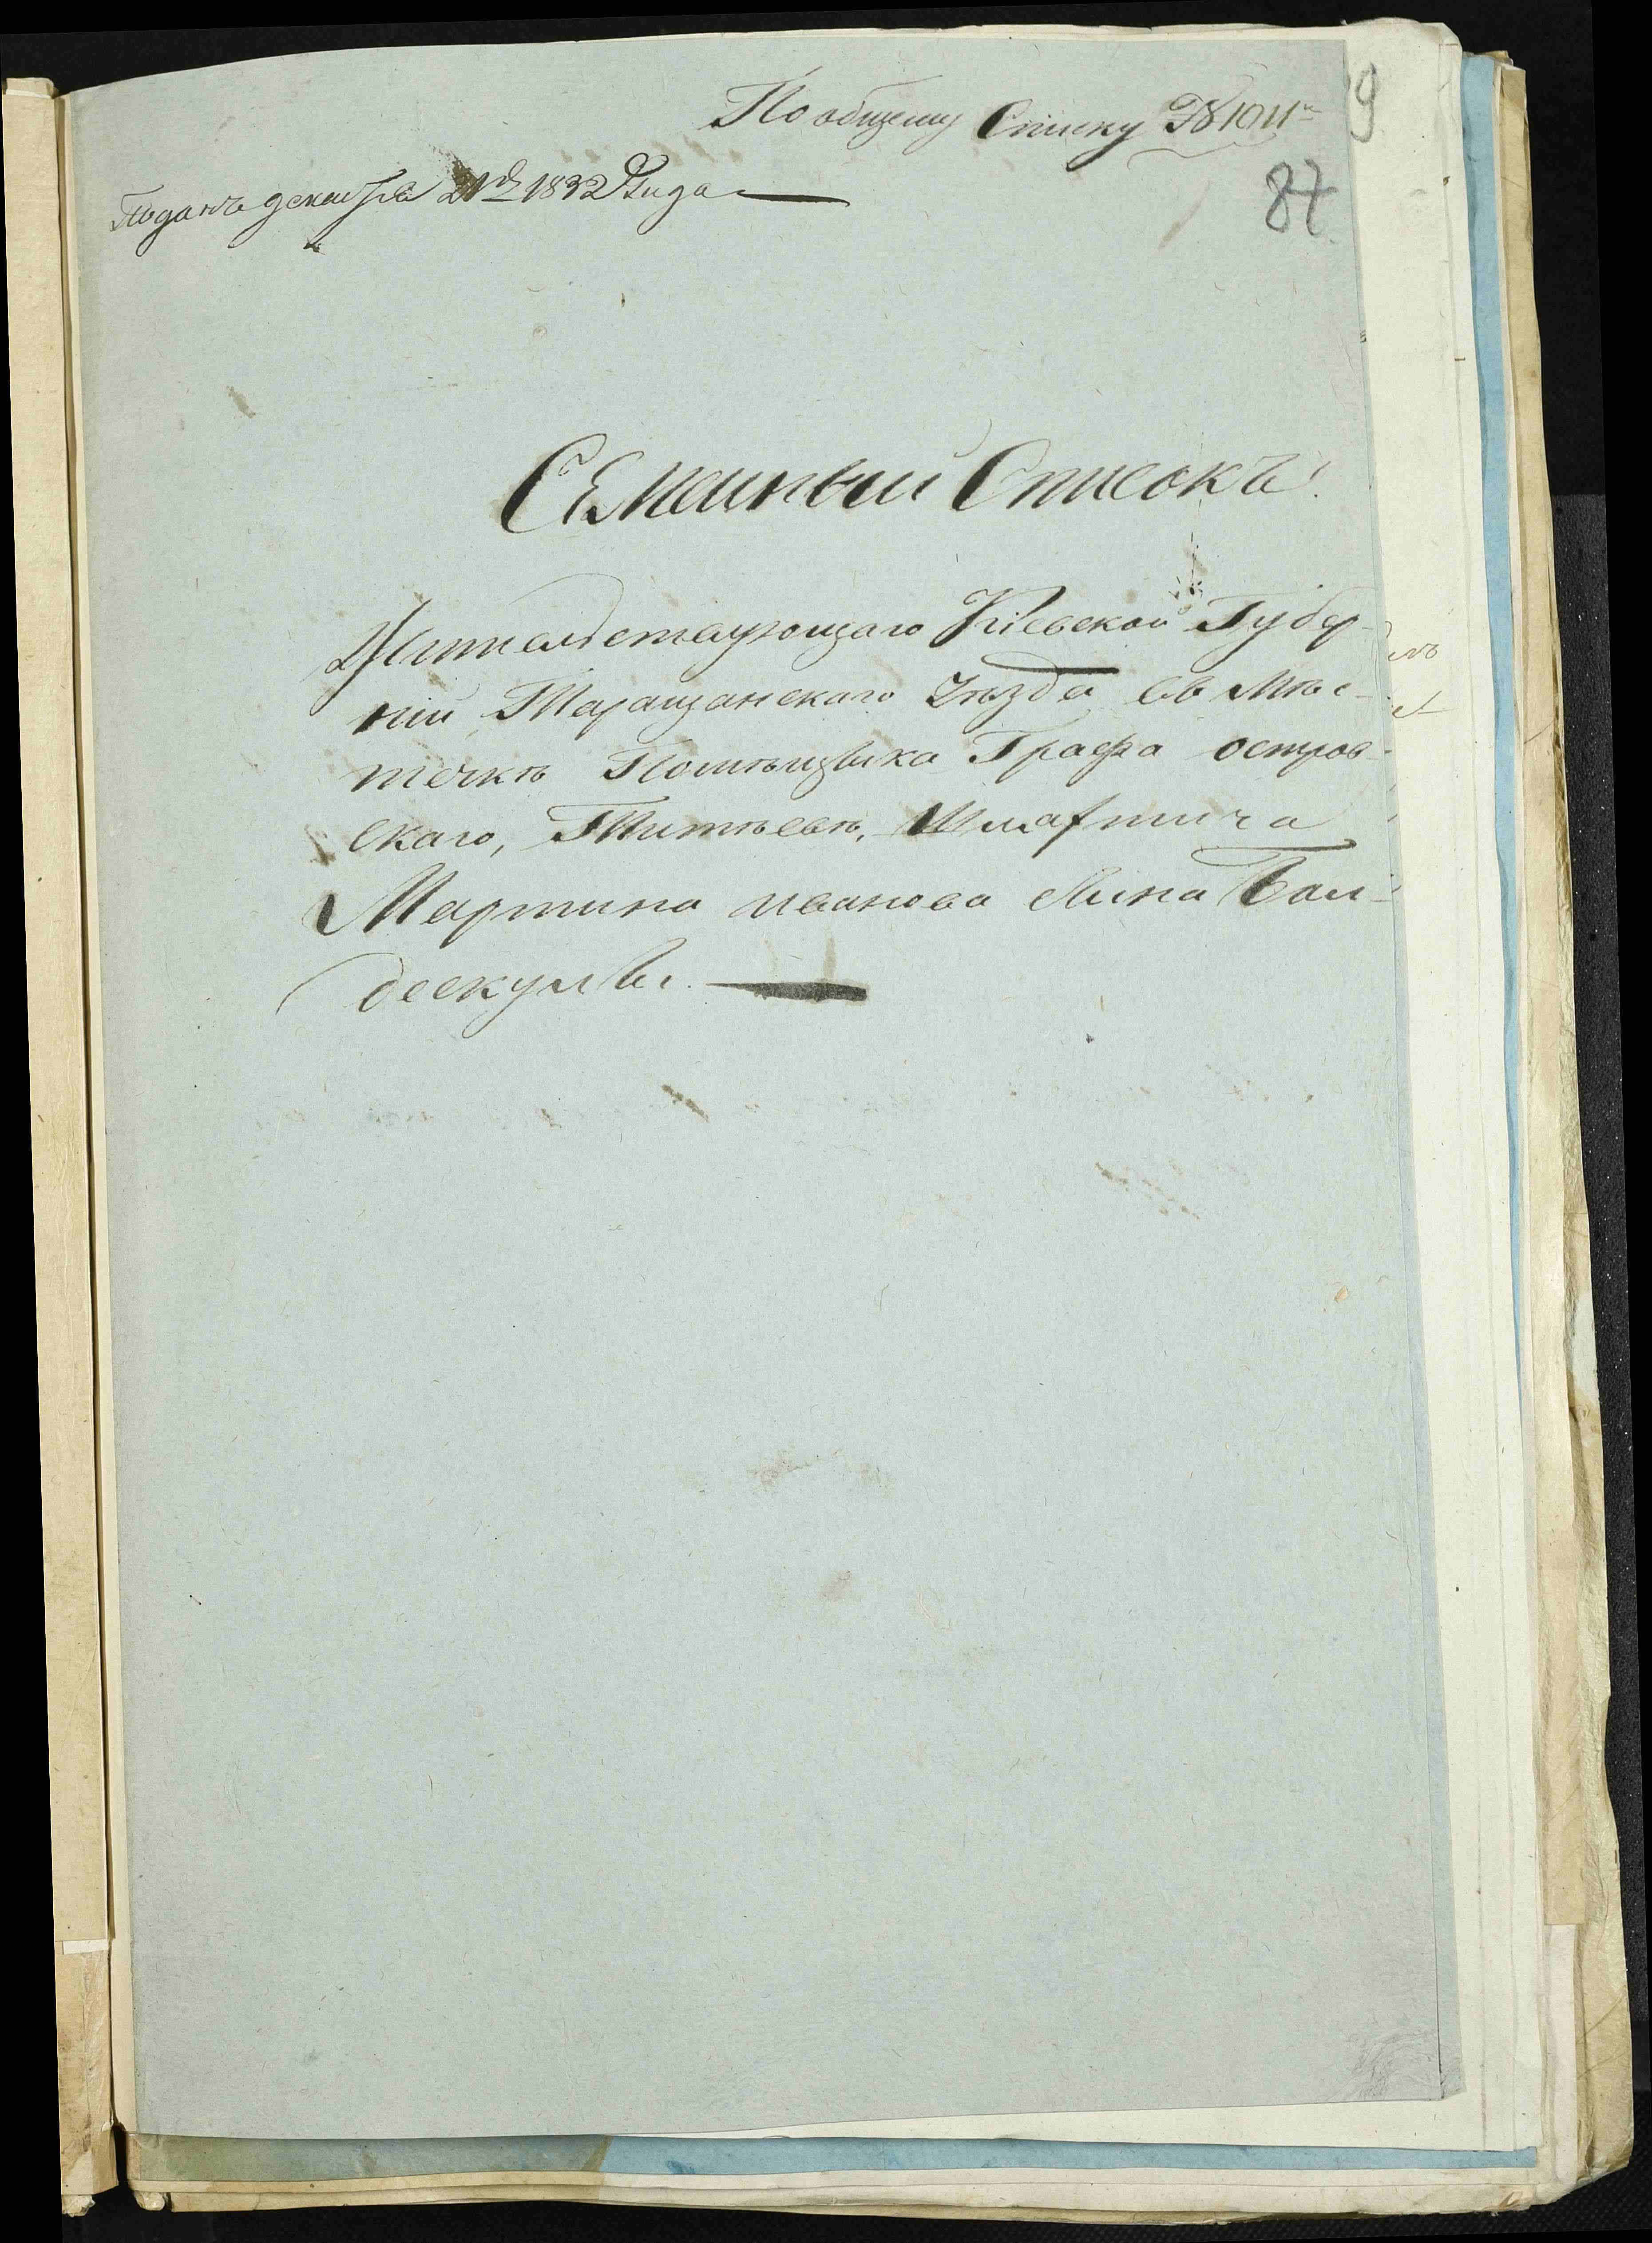 По общему Списку № 1011й
9
87
Поданъ декабря 21го 1832 Года
Семейный Списокъ
Жительствующаго Кіевской Губер-
ніи Таращанскаго Уѣзда въ Мѣс-
течкѣ Помѣщика Графа остров-
скаго, Титѣевѣ, Шляхтича
Мартина иванова сына Бал-
дескулы.